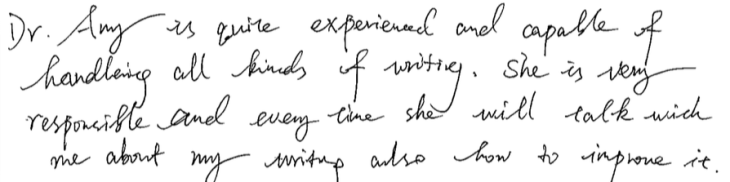 Dr. Amy is quite experienced and capable of
handling all kinds of writing. She is very
responsible and every time she will talk with
me about my writing also how to improve it.